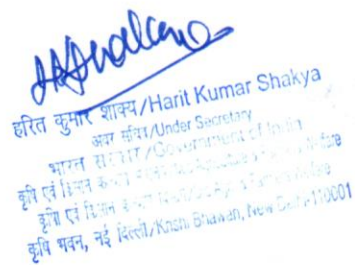 हरित कुमार शाक्य/Harit Kumar Shakya
अवर सचिव/Under Secretary
भारत सरकार/Government of India
कृषि एवं किसान कल्याण Agriculture Farmers Welfare
कृषि एवं किसान कल्याण Farmers Welfare
कृषि भवन, नई दिल्ली/Krishi Bhawan, New Delhi-110001